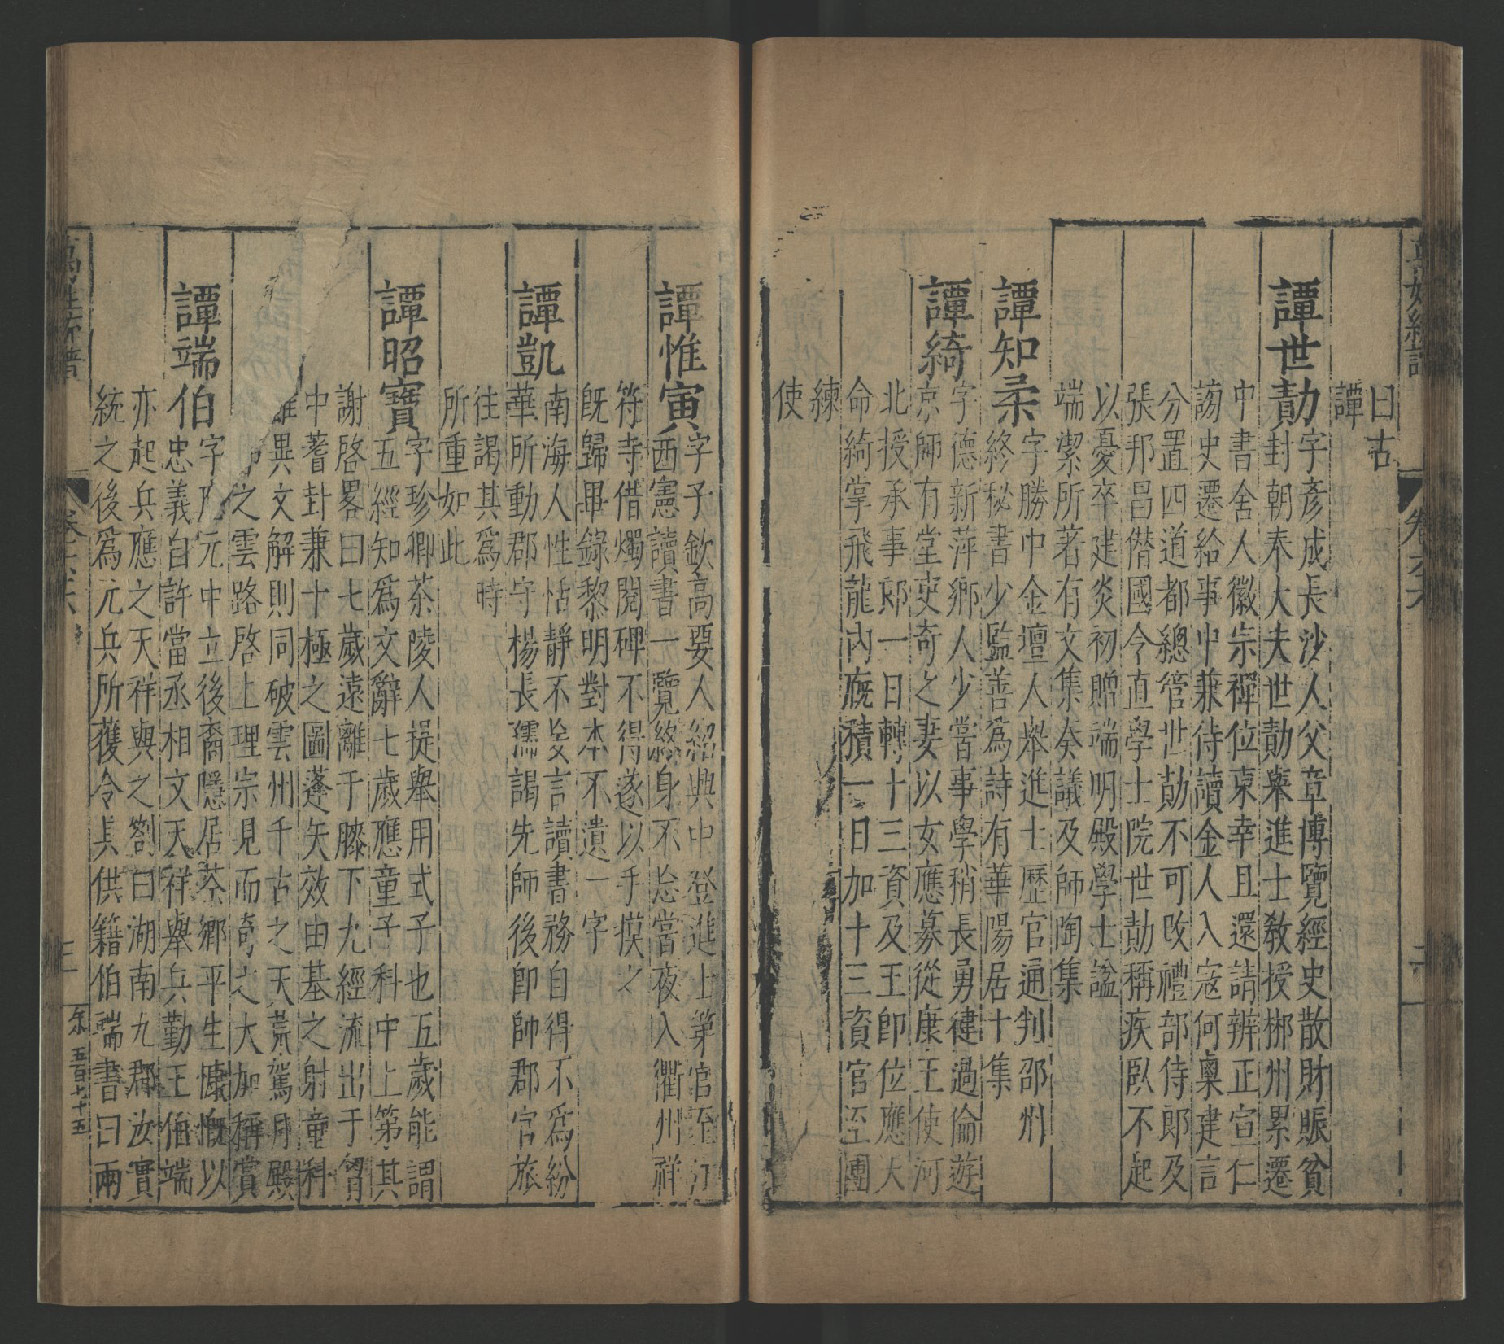 曰古
譚
譚世勣
字彥成長沙人父章博覽經史散財賑貧
封朝奉大夫世勣舉進士教授郴州累遷
中書舍人徽宗禪位東幸且還請辨正宣仁
謗史遷給事中兼侍讀金人入寇何㮚建言
分置四道都總管世勣不可改禮部侍郎及
張邦昌僭國令直學士院世勣稱疾臥不起
以憂卒建炎初贈端明殿學士謚
端潔所著有文集奏議及師陶集
譚知柔
字勝中金壇人舉進士歷官通判邵州
終秘書少監善爲詩有華陽居士集
譚綺
字德新萍鄉人少嘗事學稍長勇律過倫遊
京師有堂吏奇之妻以女應募從康王使河
北授承事郎一日轉十三資及王即位應大
命綺掌飛龍內廐積一日加十三資官至團
練
使
譚惟寅
字子欽高要人紹興中登進士第官至江
西憲讀書一覽終身不忘嘗夜入衢州祥
符寺借燭閱碑不得遂以手摸之
旣歸畢錄黎明對本不遺一字
譚凱
南海人性恬靜不妄言讀書務自得不爲紛
華所動郡守楊長孺謁先師後即帥郡官旅
往謁其爲時
所重如此
譚昭寶
字珍卿茶陵人提舉用式子也五歲能謂
五經知爲文辭七歲應童子科中上第其
謝啓畧曰七歲遠離于膝下九經流出于胷
中蓍封兼十極之圖蓬矢效由基之射童科
異文解則同破雲州千古之天荒駕月殿
之雲路啓上理宗見而奇之大加稱賞
譚端伯
字元中立後裔隱居茶鄉平生慷慨以
忠義自許當丞相文天祥舉兵勤王伯端
亦起兵應之天祥與之劄曰湖南九郡汝實
統之後爲元兵所獲令具供籍伯端書曰兩
卷六十六